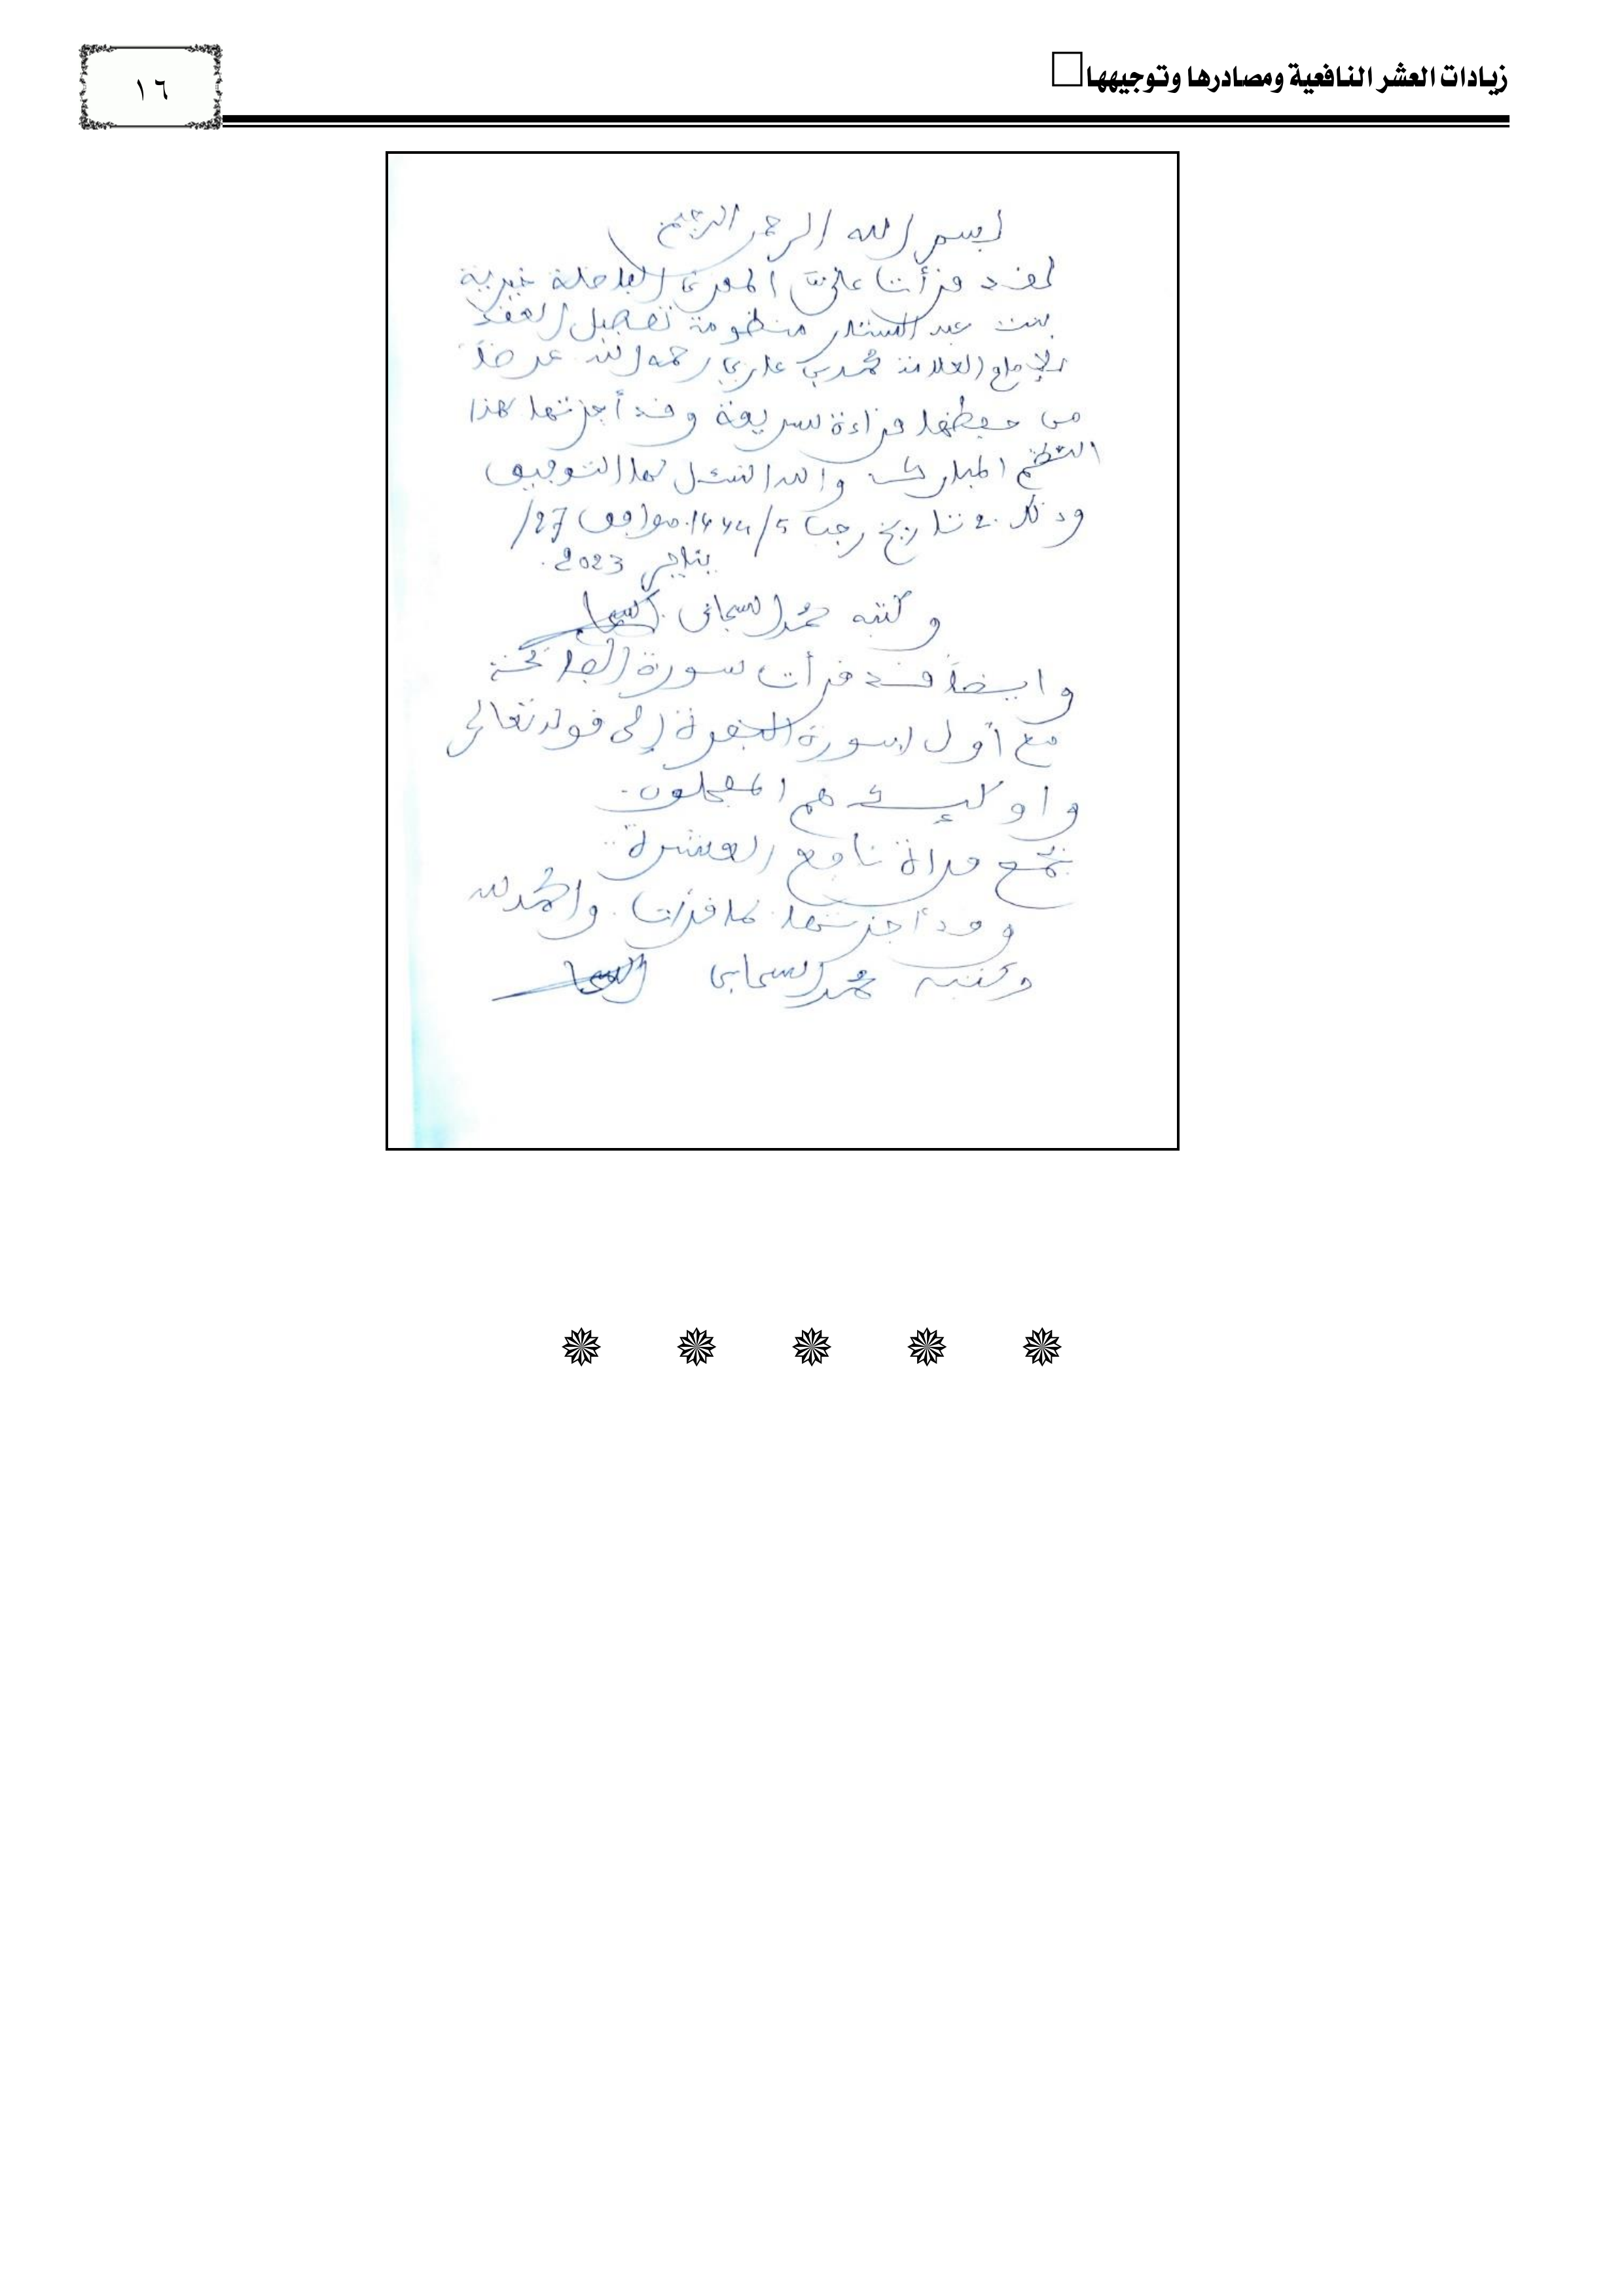 زيادات العشر النافعية ومصادرها وتوجيهها
١٦
بسم الله الرحمن الرحيم
لقد قرأت علي المقرئة الفاضلة خيرية
بنت عبد الستار منظومة تفصيل العقد
للإمام العلامة محمد بن غازي رحمه الله عرضا
من حفظها قراءة سريعة وقد أجزتها هذا
النظم المبارك والله أسئل لها التوفيق
وذلك بتاريخ رجب 5/1444 موافق 27/
يناير 2023.
وكتبه محمد السحابي
وايضا قد قرأت سورة الفاتحة
مع أول سورة البقرة إلى قوله تعالى
واولئك هم المفلحون.
بجمع قراءة نافع العشرة
وقد أجزتها كما قرأت. والحمد لله
وكتبه محمد السحابي